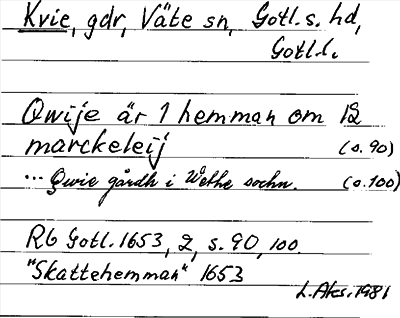 Kvie, gdr, Väte sn, Gotl. s. hd,
Gotl. l.
Qwije är 1 hemman om 12
marckeleij (s. 90)
... Qwie gårdh i Wethe sochn. (s. 100)
Rb Gotl. 1653, 2, s. 90, 100.
"Skattehemman" 1653
L. Aks. 1981